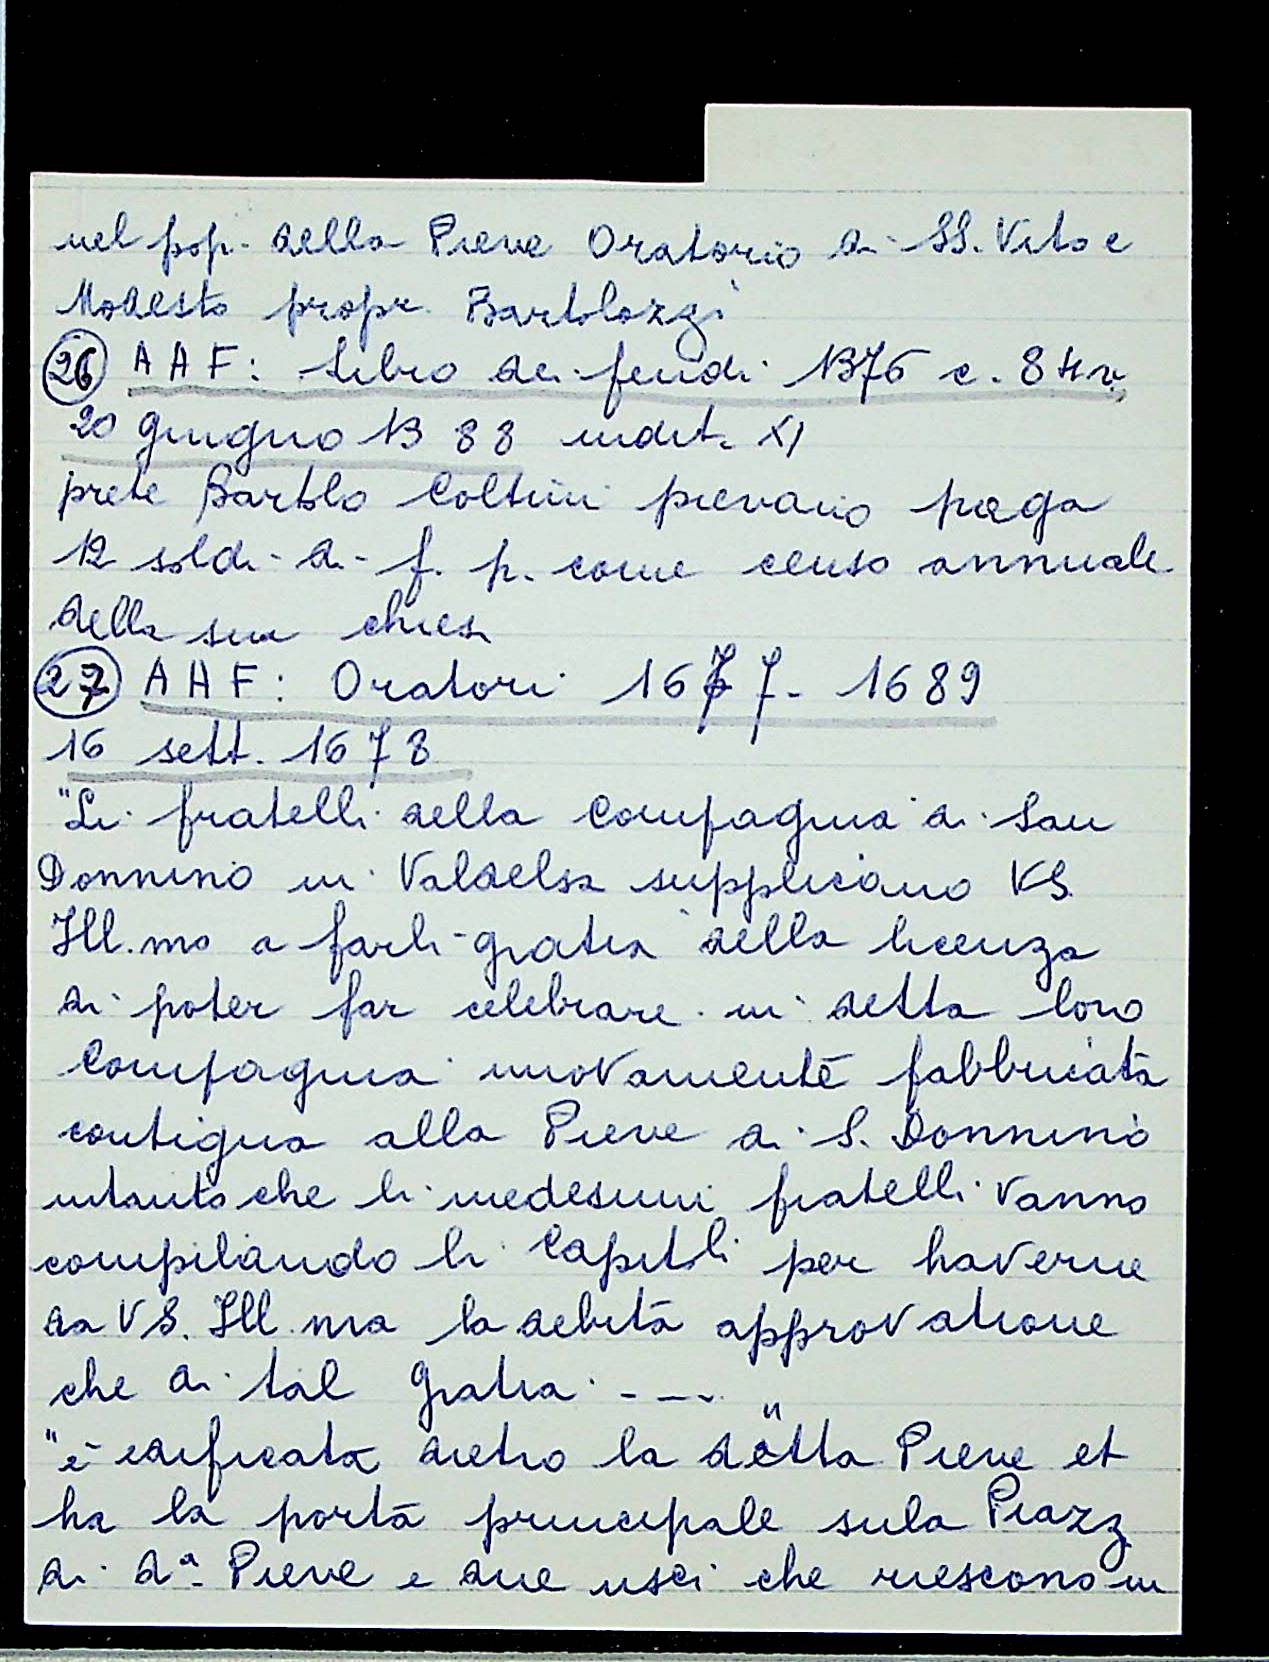 nel pop. della Pieve Oratorio di SS. Vito e
Modesto propr. Bartolozzi
26 AAF: Libro dei feudi 1376 c. 84v,
20 giugno 1388 indit. XI
prete Bartolo Coltini pievano paga
12 soldi di f. p. come censo annuale
della sua chiesa
27 AAF: Oratori 1677-1689
16 sett. 1678
"Li fratelli della Compagnia di San
Donnino in Valdelsa supplicano VS.
Ill.mo a farli gratia della licenza
di poter far celebrare in detta loro
Compagnia nuovamente fabbricata
contigua alla Pieve di S. Donnino
intanto che li medesimi fratelli vanno
compilando li Capitoli per haverne
da VS. Ill.ma la debita approvatione
che di tal gratia ----"
"è edificata dietro la detta Pieve et
ha la porta principale sula Piazz
di d.ª Pieve e due usci che riescono in